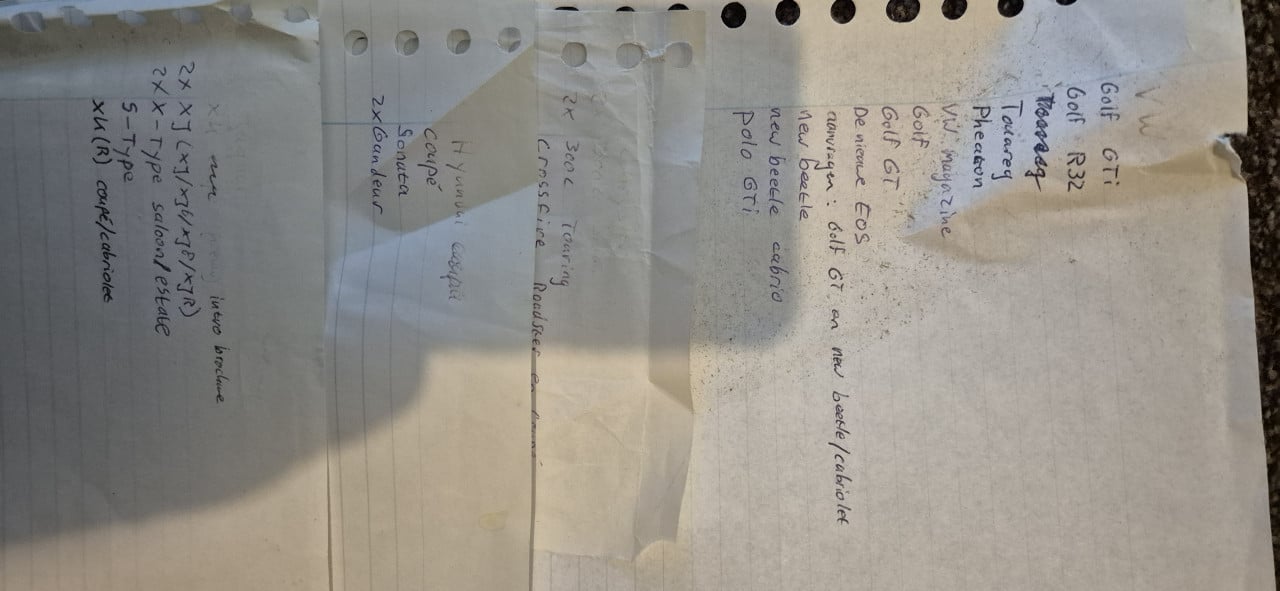 VW
Golf GTi
Golf R32
Touareg
Pheaton
VW magazine
Golf
Golf GT
De nieuwe EOS
aanvragen: Golf GT en new beetle/cabriolet
New beetle
new beetle cabrio
polo GTi
2x 300c Touring
crossfire Roadster en
Hyundai
coupé
Sonata
2x Gandeur
intro brochure
2x XJ (XJ/XJ6/XJ8/XJR)
2x X-Type saloon/estate
S-Type
XK(R) coupé/cabriolet